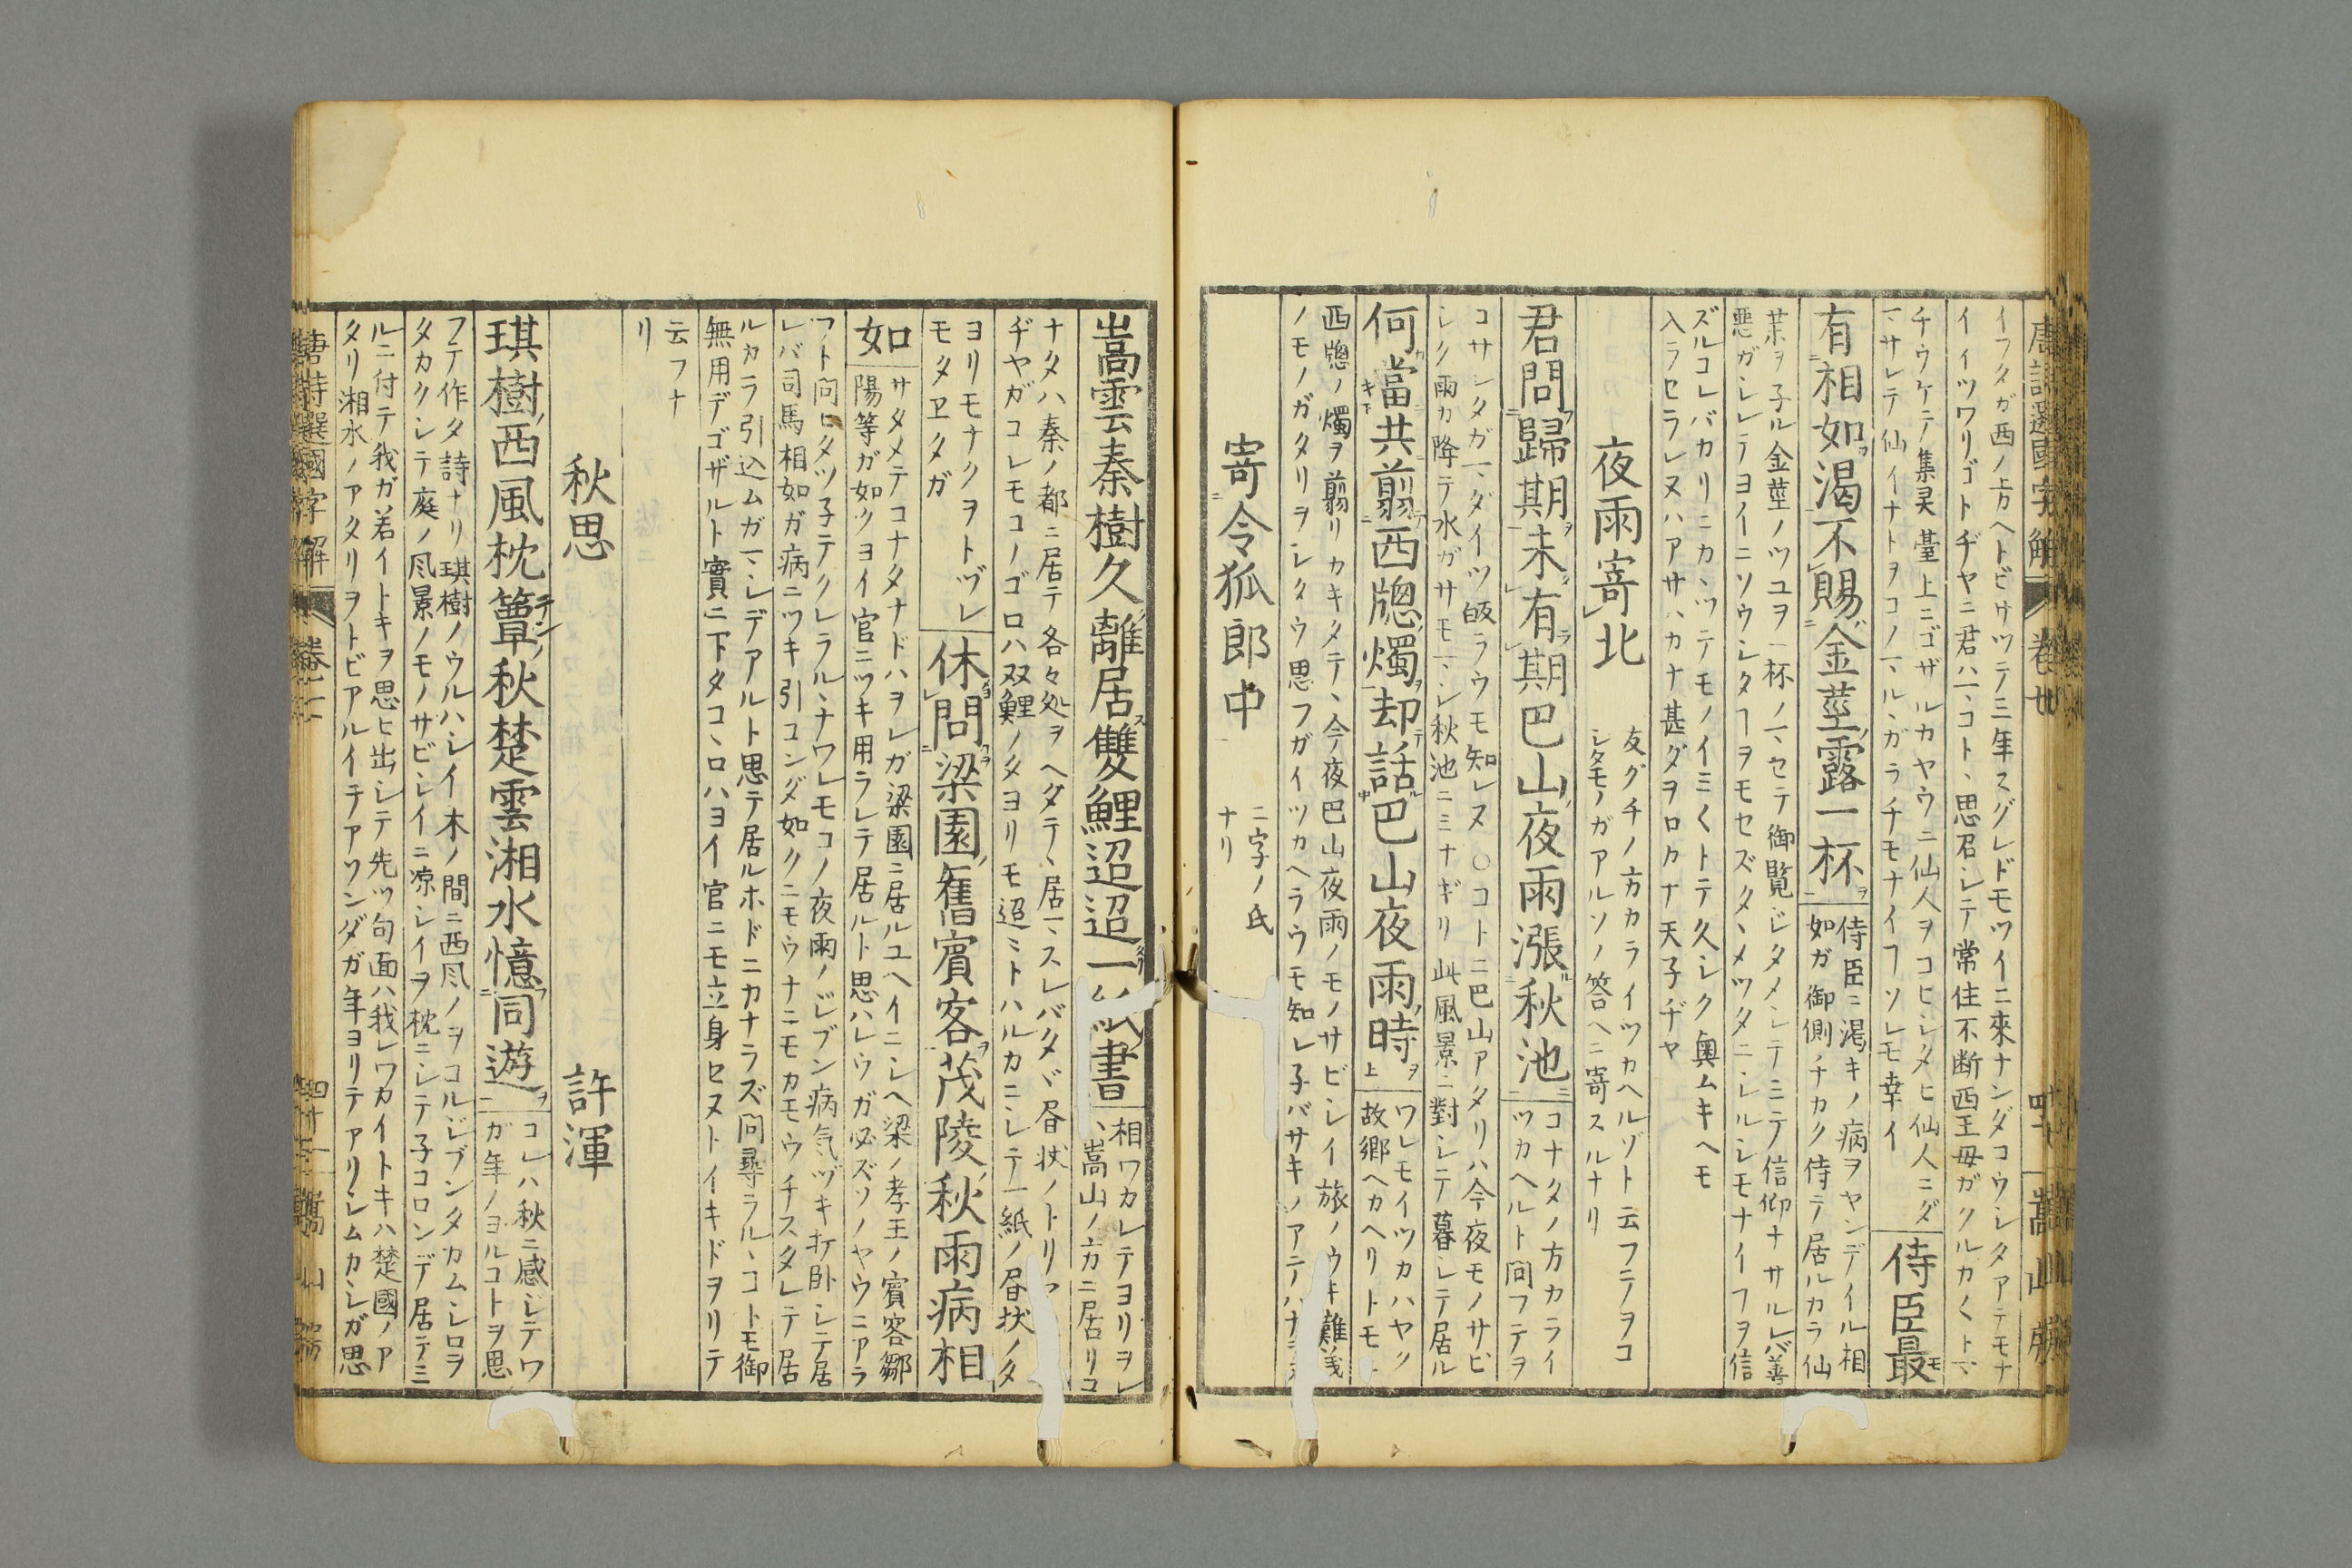 唐詩選國字解 卷廿 嵩山房
イフタガ西ノ方ヘトビサツテ三年スグレドモツイニ來ナンダコウシタアテモナ
イイツワリゴトヂヤニ君ハ一、コト、思召シテ常住不断西王母ガクルカくト一、
チウケテ集灵臺上ニゴザルカヤウニ仙人ヲコヒシメヒ仙人ニダ
マサレテ仙イナトヲコノマル、ガラチモナイフソレモ幸イ
侍臣最
有相如渇不賜金莖露一杯
侍臣ニ渇キノ病ヲヤンデイル相
如ガ御側チカク侍テ居ルカラ仙
薬ヲ子ル金莖ノツユヲ一杯ノマセテ御覧ジタメシテミテ信仰ナサルレバ善
悪ガシレテヨイニソウシタヿヲモセズタ、メツタニシルシモナイフヲ信
ズルコレバカリニカ、ツテモノイミくトテ久シク奥ムキヘモ
入ラセラレヌハアサハカナ甚ダヲロカナ天子ヂヤ
夜雨寄北
友ダチノ方カライツカヘルゾト云フニノヲコ
シタモノガアルソノ答ヘニ寄スルナリ
君問歸期未有期巴山夜雨漲秋池
コナタノ方カライ
ツカヘルト問フテヲ
コサシタガ一、ダイツ皈ラウモ知レヌ〇コトニ巴山アタリハ今夜モノサビ
シク雨カ降テ水ガサモ一、シ秋池ニミナギリ此風景ニ對シテ暮シテ居ル
何當共翦西牕燭却話巴山夜雨時
ワレモイツカハヤク
故郷ヘカヘリトモ
西牕ノ燭ヲ翦リカキタテ、今夜巴山夜雨ノモノサビシイ旅ノウキ難義
ノモノガタリヲシタウ思フガイツカヘラウモ知レ子バサキノアテハナ
寄令狐郎中
二字ノ氏
ナリ
嵩雲秦樹久離居雙鯉迢迢一紙書
相ワカレテヨリヲレ
ハ嵩山ノ方ニ居リコ
ナタハ秦ノ都ニ居テ各々処ヲヘダテ、居一、スレバタヾ昼状ノトリ
ヂヤガコレモコノゴロハ双鯉ノタヨリモ迢ミトハルカニシテ一紙ノ昼状ノタ
ヨリモナクヲトヅレ
モタヱタガ
休問梁園舊賓客茂陵秋雨病相
如
サタメテコナタナドハヲレガ梁園ニ居ルユヘイニシヘ梁ノ孝王ノ賓客鄒
陽等ガ如クヨイ官ニツキ用ラレテ居ルト思ハレウガ必ズソノヤウニアラ
フト問ヒタヅ子テクレラル、ナワレモコノ夜雨ノジブン病気ヅキ打臥シテ居
レバ司馬相如ガ病ニツキ引コンダ如クニモウナニモカモウチスタレテ居
ルカラ引込ムガ一、シデアルト思テ居ルホドニカナラズ問尋ラル、コトモ御
無用デゴザルト實ニ下タコ、ロハヨイ官ニモ立身セヌトイキドヲリテ
云フナ
リ
秋思 許渾
琪樹西風枕簟秋楚雲湘水憶同遊
コレハ秋ニ感ジテワ
ガ年ノヨルコトヲ思
フテ作タ詩ナリ琪樹ノウルハシイ木ノ間ニ西凮ノヲコルジブンタカムシロヲ
タカクシテ庭ノ凮景ノモノサビシイニ凉シイヲ枕ニシテ子コロンデ居テミ
ルニ付テ我ガ若イトキヲ思ヒ出シテ先ツ句面ハ我レワカイトキハ楚國ノア
タリ湘水ノアタリヲトビアルイテアソンダガ年ヨリテアリシムカシガ思
唐詩選國字解